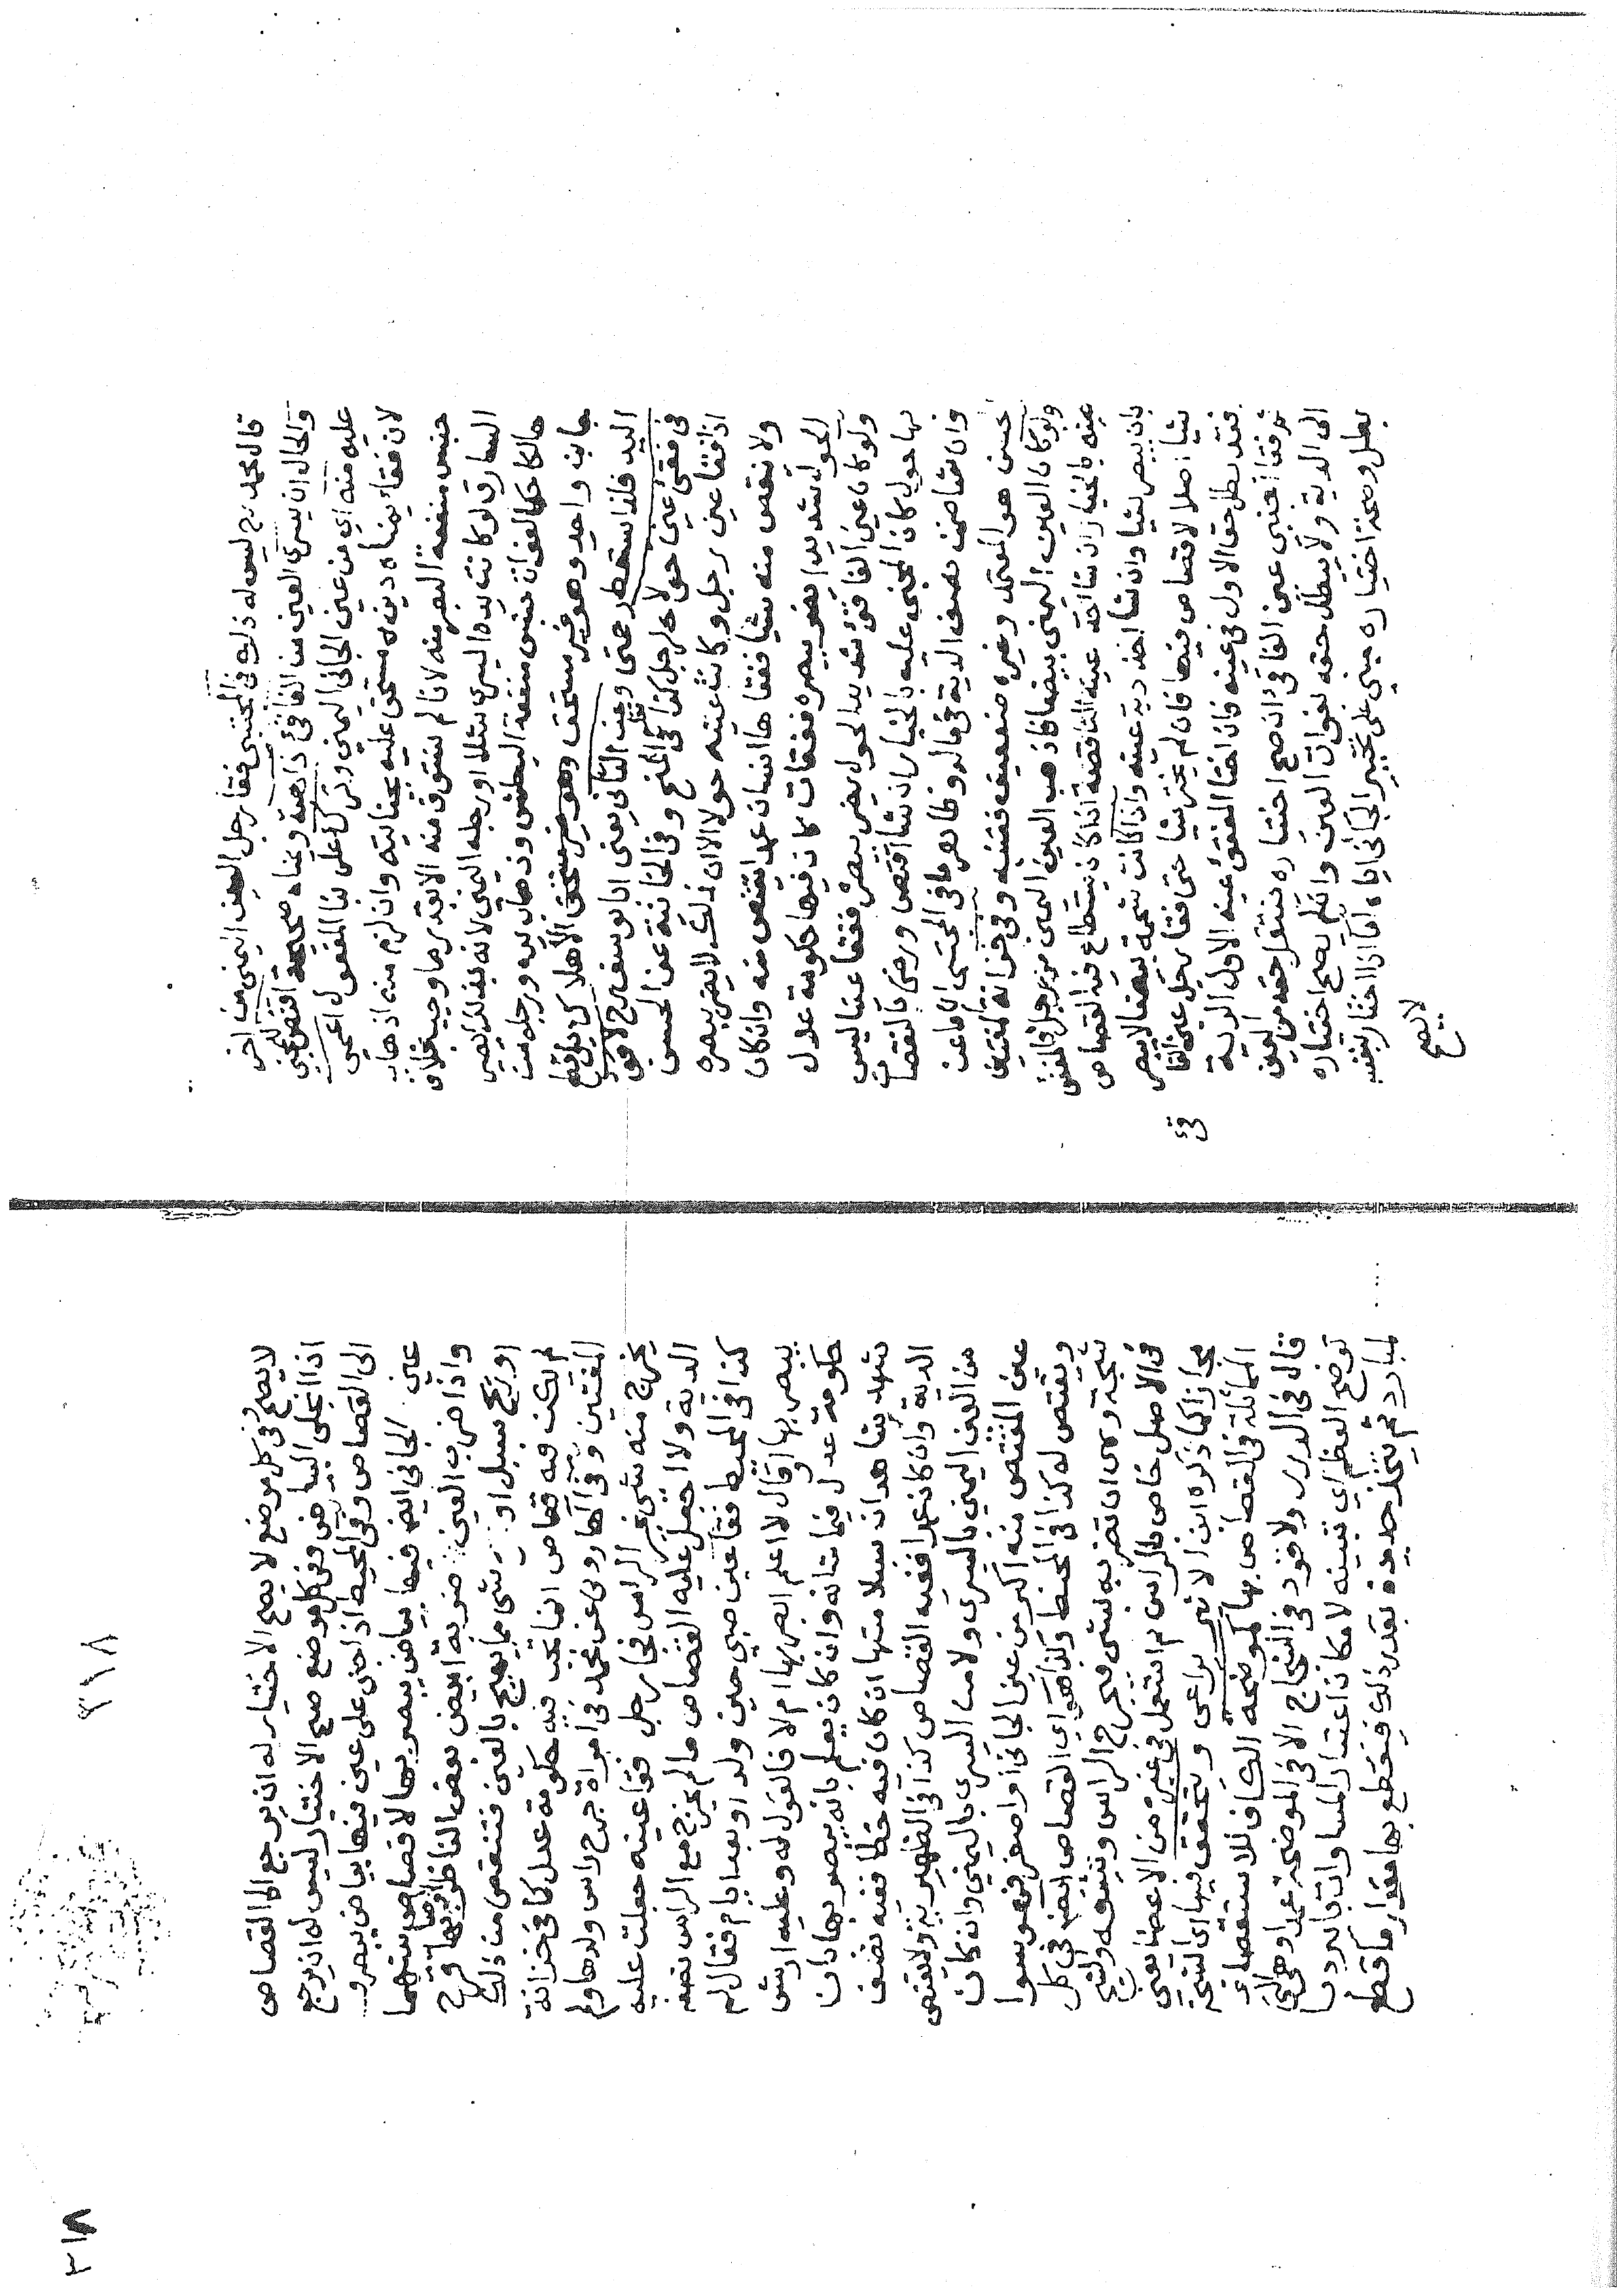 قال محمد رح ليس له ذلك في المجتبى فقا رجل العين اليمنى من اخر
والحال ان يسرى العين من الفاقئ ذاهبة ويمناه صحيحة اقتص للمجني
عليه منه اي من عين الجاني اليمنى وترك اعمى
لان فقأ يمناه دين مستحق عليه بجنايته وان لزم منه اذهاب
جنس منفعة البصر منه لانا لم نستوف منه الا بقدر ما وجب بخلاف
السارق لو كانت يده اليسرى شلا او رجله اليمنى لانه بعد لم يصر
هالكا حكما لفوات جنس منفعة البطش وذهاب يده ورجله من
جانب واحد وهو غير مستحق
اليد فلذا سقط رحمتي وعن الثاني يعني ابا يوسف رح لا قود
في فقئ عين حولا رجل كذا في المنح وفي الخانية عن الحسن
اذا فقا عين رجل وكانت عينه حولا الا ان ذلك لا يضر ببصره
ولا نقص منه شيا ففقاها انسان عمدا يقتص منه وان كان
الحول شديدا يضر ببصره ففقات كان فيها حكومة عدل
ولو كان عين الفاقئ شديد الحول يضر ببصره ففقا عينا ليس
بها حول كان المجني عليه بالخيار ان شا اقتص ورضي بالنقصان
وان شا ضمنه نصف الدية في ماله وظاهر ما في المجتبى ان ما عن
الحسن هو المعتمد وغيره ضعيف فتنبه وفي خزانة المفتين
ولو كان العين اليمنى بيضا فاذهب العين اليمنى من رجل فالمفقو
عينه بالخيار ان شا اخذ عينه الناقصة اذا كان يستطاع فيه القصاص
بان يبصر شيا وان شا اخذ دية عينه واذا كانت شحمة بيضا لا يبصر
شيا اصلا لا قصاص فيها فان لم يختر شيا حتى فقا رجل عين الفا
قئ
فقد بطل حق الاول في عينه فان اختار المفقو عينه الاول الدية
ثم فقا اجنبي عين الفاقئ ان صح اختياره ينتقل حقه من العين
الى الدية ولا يبطل حقه بفوات العين وان لم يصح اختياره
بطل وصحة اختياره مبني على تخيير الجاني اياه اما اذا اختار بنفسه
لا يصح
لا يصح وفي كل موضع لا يصح الاختيار له ان يرجع الى القصاص
اذا انجلى البياض وفي كل موضع صح الاختيار ليس له ان يرجع
الى القصاص وفي المحيط اذا جنى على عين فيها بياض يبصر و
عين الجاني ايضا فيها بياض يبصر بها لا قصاص بينهما
واذا ضرب العين ضربة ابيض بعض الناظر او اصابها قرح
او ريح سبل او شي مما يهيج بالعين فنقص من ذلك
لم يكن فيه قصاص انما تجب فيه حكومة عدل كما في خزانة
المفتين وفي الهاروني عن محمد في امراة جرح راس ولدها ولم
يخرج منه شي غير الراس فجا رجل ففقا عينه جعلت عليه
الدية ولا اجعل عليه القصاص ما لم يخرج مع الراس نصفه
كذا في المحيط فقا عين صبي حين ولد او بعد ايام فقال لم
يبصر بها او قال لا اعلم ابصر بها ام لا فالقول له وعليه ارش
حكومة عدل فيما شانه وان كان يعلم بانه يبصر بها بان
شهد شاهدان بسلامتها ان كان فيه خطا ففيه نصف
الدية وان كان عمدا ففيه القصاص كذا في الظهيرية ولا يقتص
من العين اليمنى باليسرى ولا من اليسرى باليمنى وان كان
عين المقتص منه اكبر من عين الجاني او اصغر فهو سوا
ويقتص له كذا في المحيط وكذا هو اي القصاص ايضا في كل
شجة وهي ان تضربه بشي فيجرح الراس وتشقه والشج
في الاصل خاص بالراس ثم استعمل في غيره من الاعضا يعني
مجازا كما ذكره ابن الاثير يراعى ويتحقق فيها اي الشجة
المماثلة في القصاص بها كموضحة الكاف للاستقصاء
قال في الدرر ولا قود في الشجاج الا في الموضحة عمدا وهي التي
توضح العظم اي تبينه لامكان اعتبار المساواة بالبرد
لمبارد ثم يتخذ حديدة بقدر ذلك فيقطع بها مقدار ما قطع
٣١٨
٣١٨